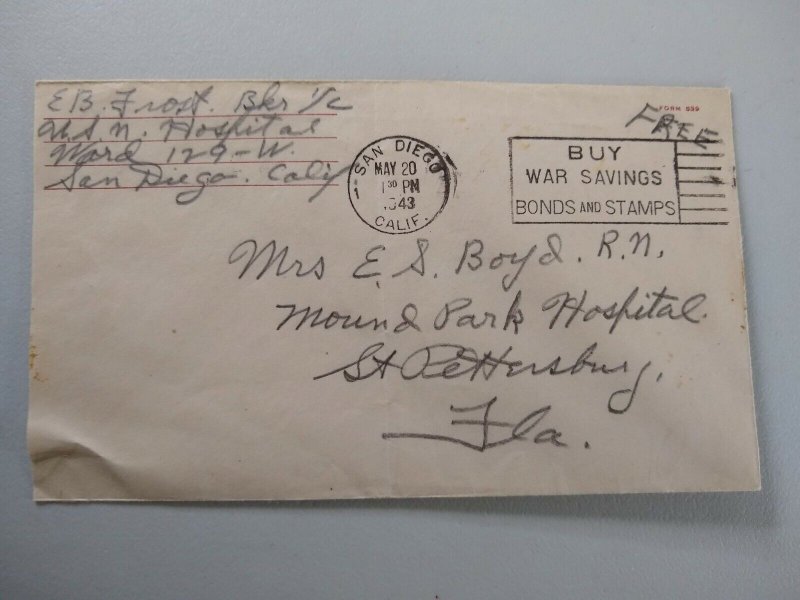 E.B. Frost. Bkr 1/c
U.S.N. Hospital
Ward 129-W.
San Diego. Calif
FORM 539
FREE
SAN DIEGO
1
MAY 20
1 30 PM
1943
CALIF.
BUY
WAR SAVINGS
BONDS AND STAMPS
Mrs E. S. Boyd. R.N.
Mound Park Hospital.
St Pettersburg,
Fla.